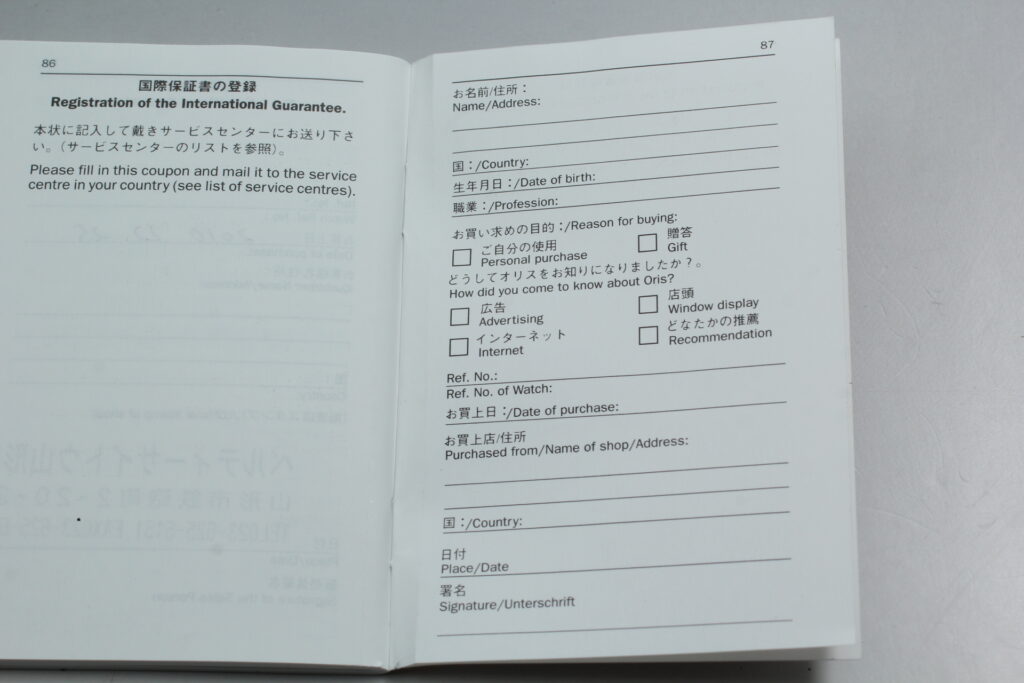 86
国際保証書の登録
Registration of the International Guarantee.
本状に記入して戴きサービスセンターにお送り下さ
い。（サービスセンターのリストを参照）。
Please fill in this coupon and mail it to the service
centre in your country (see list of service centres).
87
お名前/住所：
Name/Address:
国：/Country:
生年月日：/Date of birth:
職業：/Profession:
お買い求めの目的：/Reason for buying:
ご自分の使用
Personal purchase
贈答
Gift
どうしてオリスをお知りになりましたか？。
How did you come to know about Oris?
広告
Advertising
店頭
Window display
インターネット
Internet
どなたかの推薦
Recommendation
Ref. No.:
Ref. No. of Watch:
お買上日：/Date of purchase:
お買上店/住所
Purchased from/Name of shop/Address:
国：/Country:
日付
Place/Date
署名
Signature/Unterschrift